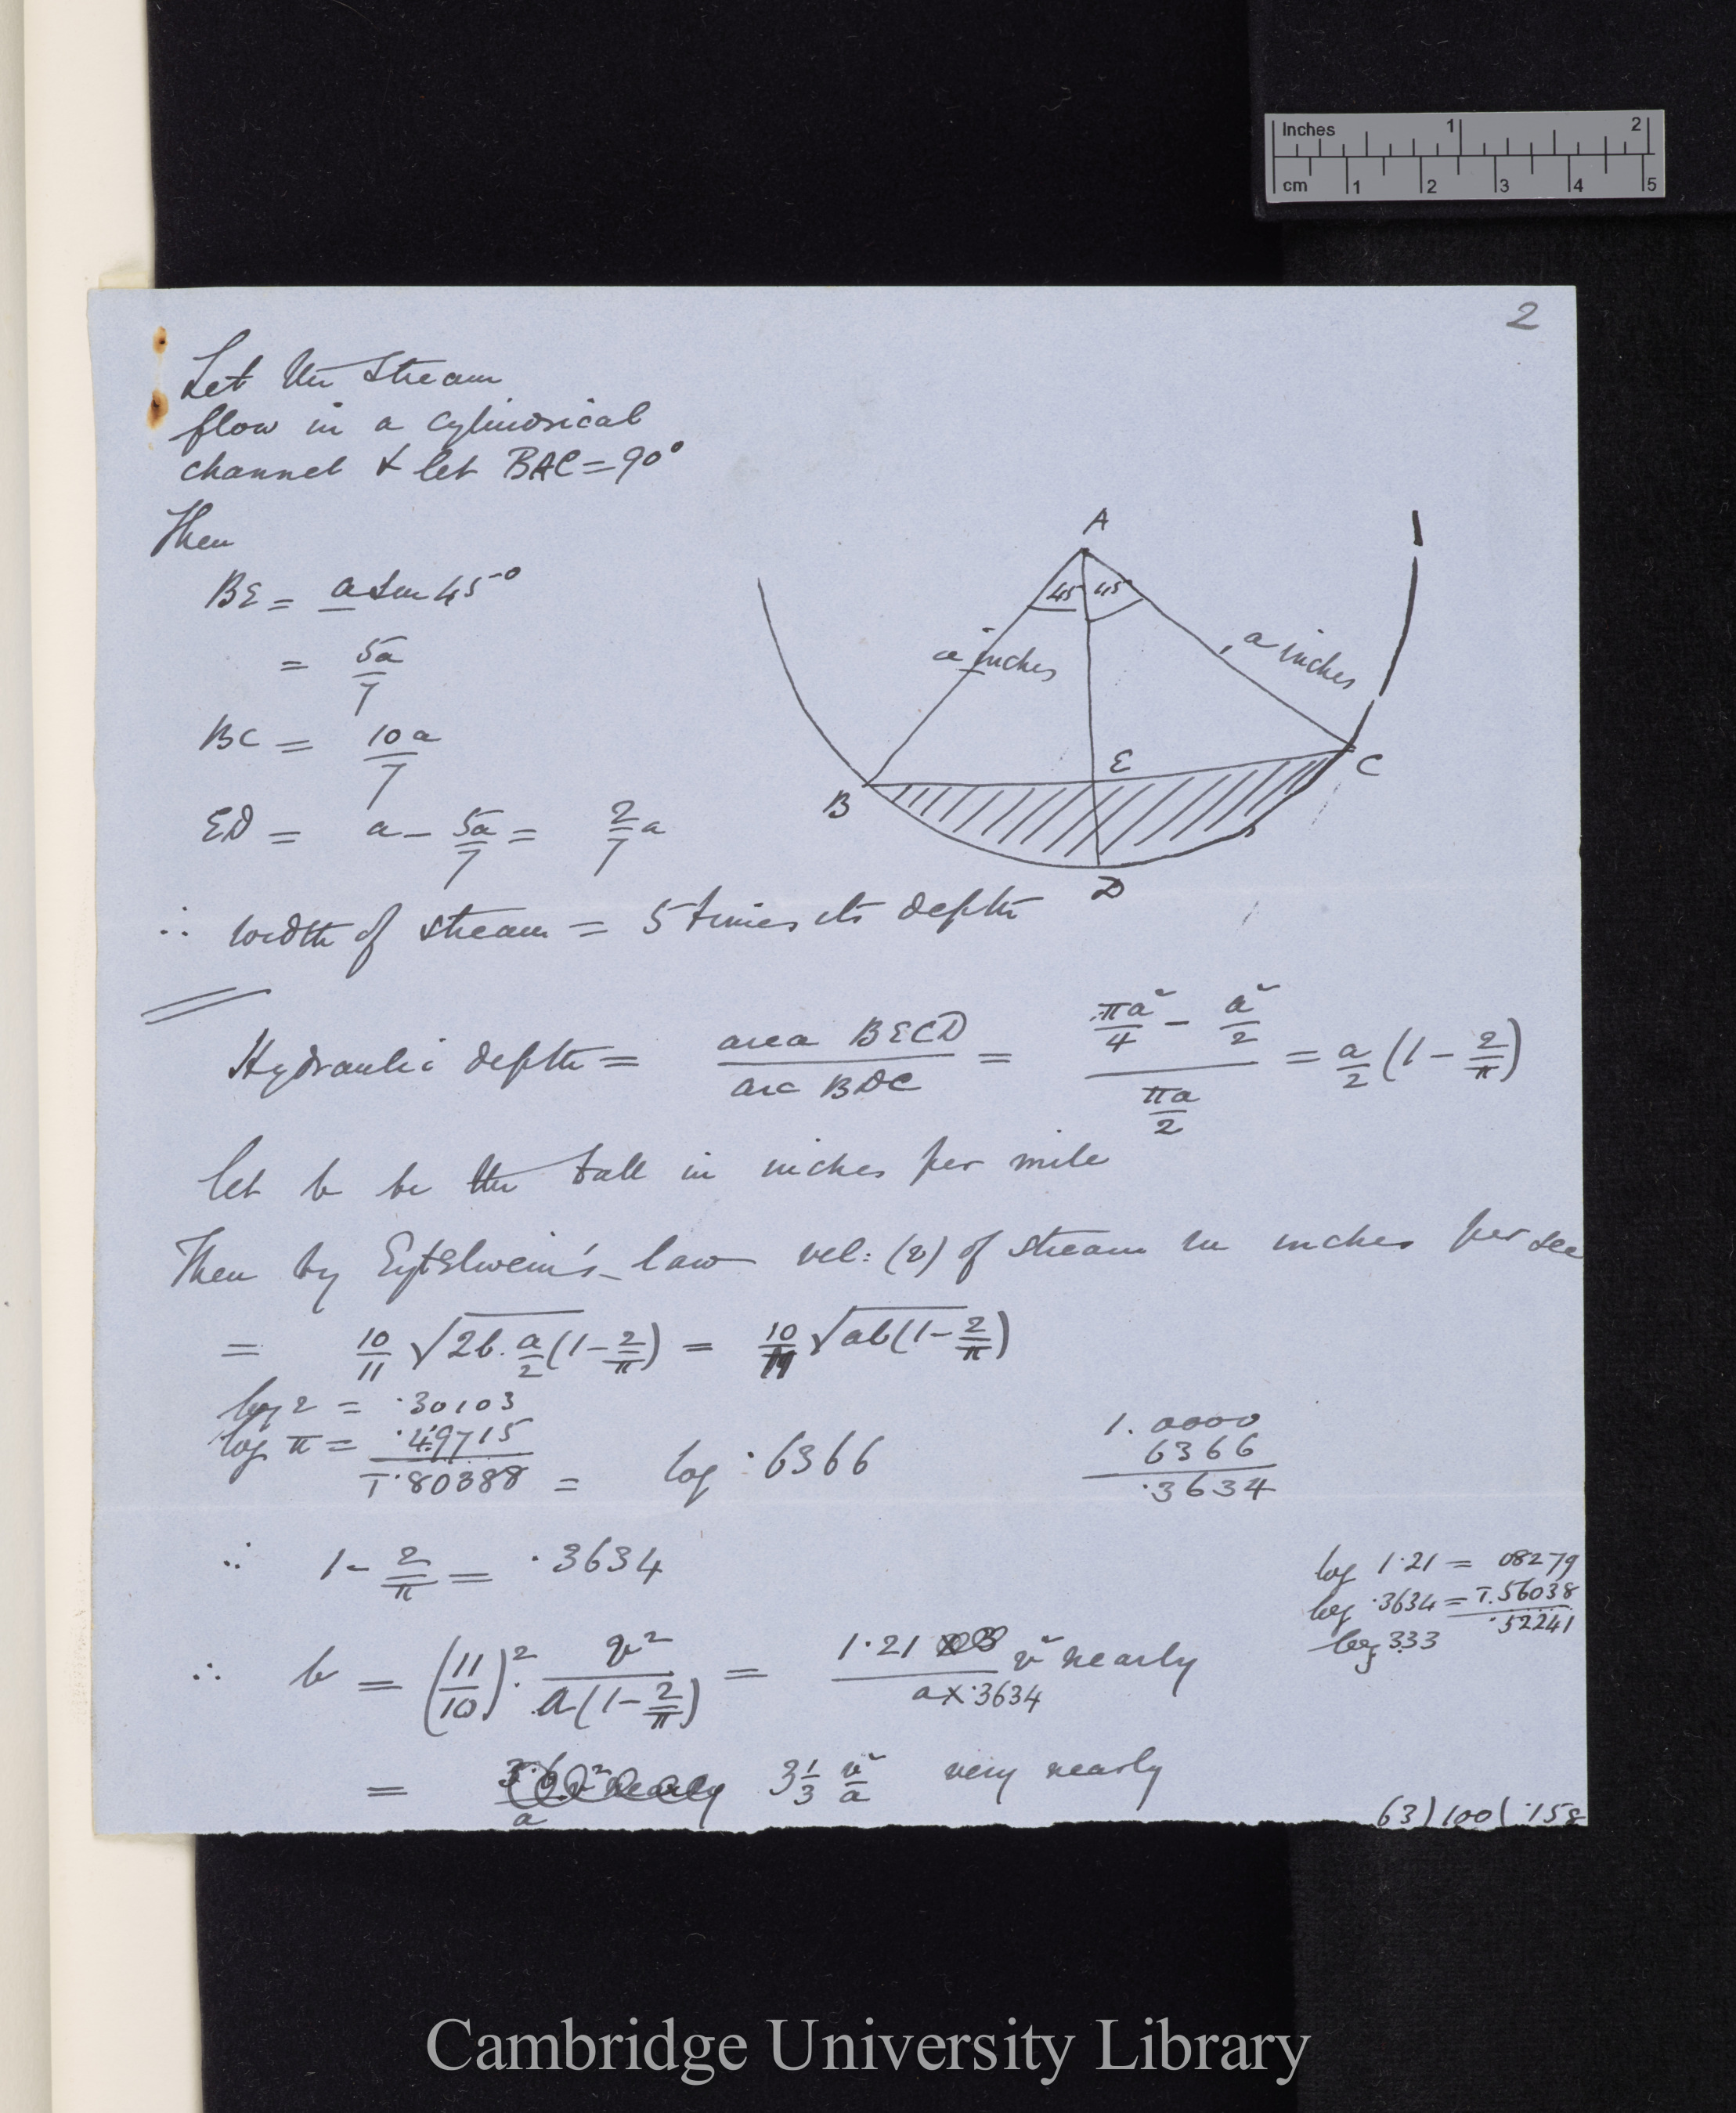 Inches 1 2
cm 1 2 3 4 5
2
Let the stream
flow in a cylindrical
channel & let BAC = 90°
Then
BE = a sin 45°
= 5a/7
BC = 10a/7
ED = a - 5a/7 = 2/7 a
A
45 45°
a inches
a inches
B
E
C
D
∴ width of stream = 5 times its depth
Hydraulic depth = area BECD / arc BDC = (πa²/4 - a²/2) / (πa/2) = a/2 (1 - 2/π)
let b be the fall in inches per mile
Then by Eytelwein's law vel: (v) of stream in inches per sec
= 10/11 √2b. a/2 (1 - 2/π) = 10/11 √ab(1 - 2/π)
log 2 = ·30103
log π = ·49715
1̄·80388 = log ·6366
1.0000
6366
·3634
∴ 1 - 2/π = ·3634
log 1·21 = 08279
log ·3634 = 1̄.56038
·52241
log 333
∴ b = (11/10)² · v² / a(1 - 2/π) = 1·21 / a × ·3634 v² nearly
= 3 1/3 v²/a very nearly
63) 100 ( ·158
Cambridge University Library